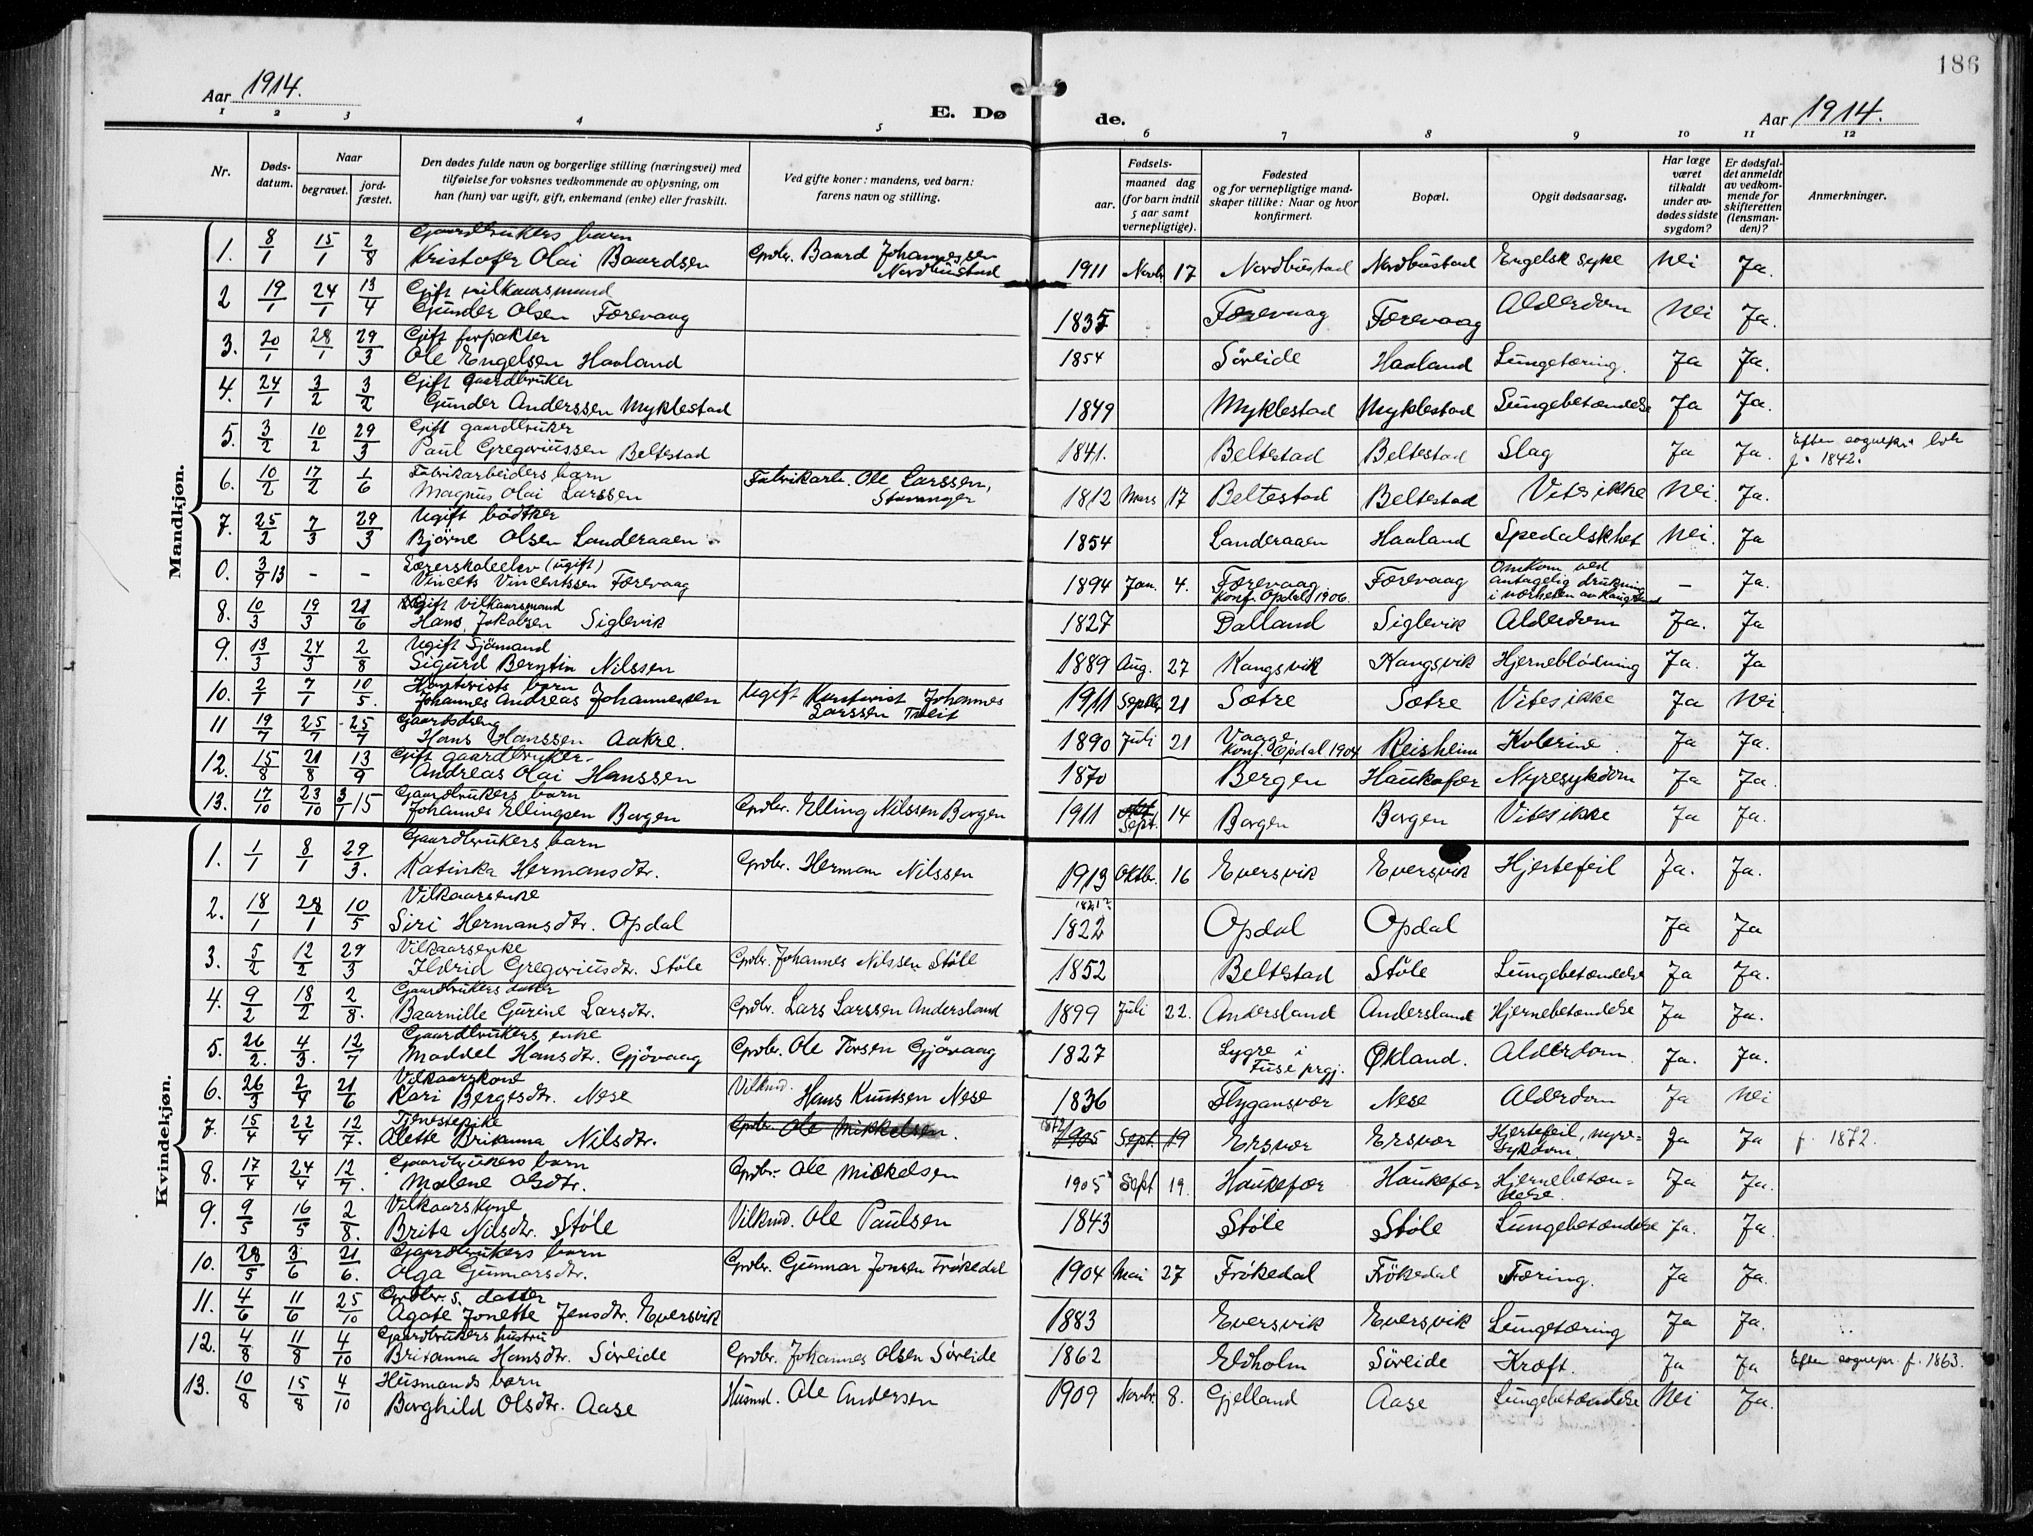 186
Aar 1914.
E. Dø
de.
Aar 1914.
1 2 3 4 5 6 7 8 9 10 11 12
Nr.
Døds-datum.
Naar
begravet.
jord-fæstet.
Den dødes fulde navn og borgerlige stilling (næringsvei) med
tilføielse for voksnes vedkommende av oplysning, om
han (hun) var ugift, gift, enkemand (enke) eller fraskilt.
Ved gifte koner: mandens, ved barn:
farens navn og stilling.
Fødsels-
aar.
maaned dag
(for barn indtil
5 aar samt
vernepligtige).
Fødested
og for vernepligtige mand-
skaper tillike: Naar og hvor
konfirmert.
Bopæl.
Opgit dødsaarsag.
Har læge
været
tilkaldt
under av-
dødes sidste
sygdom?
Er dødsfal-
det anmeldt
av vedkom-
mende for
skifteretten
(lensman-
den)?
Anmerkninger.
Mandkjøn.
1. 8/1 15/1 2/8 Gaardbrukers barn Kristofer Olai Baardsen Grdbr. Baard Johannessen Nordbustad 1911 Novbr. 17 Nordbustad Nordbustad Engelsk syke Nei Ja.
2 19/1 24/1 13/4 Gift vilkaarsmand Gunder Olsen Færevaag 1835 Færevaag Færevaag Alderdom Nei Ja.
3. 20/1 28/1 29/3 Gift forpakter Ole Engelsen Haaland 1854 Søreide Haaland Lungetæring. Ja Ja.
4. 24/1 3/2 3/2 Gift gaardbruker Gunder Anderssen Myklestad 1849 Myklestad Myklestad Lungebetændelse Ja Ja.
5. 3/2 10/2 29/3 Gift gaardbruker Paul Gregoriussen Beltestad 1841. Beltestad Beltestad Slag Ja Ja. Efter sognepr. bok f. 1842.
6. 10/2 17/2 1/6 Fabrikarbeiders barn Magnus Olai Larssen Fabrikarb. Ole Larssen, Stavanger 1812 Mars 17 Beltestad Beltestad Vites ikke Nei. Ja.
7. 25/2 7/3 29/3 Ugift bødtker Bjørne Olsen Landeraaen 1854 Landeraaen Haaland Spedalskhet Nei. Ja
0. 3/9 13 - - Lærerskoleelev (ugift) Vincets Vincentssen Færevaag 1894 Jan. 4. Færevaag Konf. Opdal 1906. Færevaag Omkom ved antagelig drukning i nærheten av Haugesund - Ja.
8. 10/3 19/3 21/6 Gift vilkaarsmand Hans Jakobsen Siglevik 1827 Dalland Siglevik Alderdom Ja. Ja
9. 13/3 24/3 2/8 Ugift Sjømand Sigurd Berntin Nilssen 1889 Aug. 27 Kangsvik Kangsvik Hjerneblødning Ja. Ja
10. 2/1 7/1 10/5. barn Johannes Andreas Johannessen Ugift Johannes Larssen 1911 Septbr 21 Sætre Sætre Vites ikke Ja Nei
11 19/7 25/7 25/7 Gaardsdreng Hans Hanssen Aakre. 1890 Juli 21 Vaage, Konf. Opdal 1904 Reisheim Kolerine. Ja Ja.
12. 15/8 21/8 13/9 Gift gaardbruker. Andreas Olai Hanssen 1870 Bergen Haukefær Nyresykdom Ja Ja.
13. 17/10 23/10 3/1 15 Gaardbrukers barn Johannes Ellingsen Borgen Grdbr. Elling Nilssen Borgen 1911 Sept. 14 Borgen Borgen Vites ikke Ja Ja.
Kvindekjøn.
1. 1/1 8/1 29/3. Gaardbrukers barn Katinka Hermansdtr. Grdbr. Herman Nilssen 1913 Oktbr. 16 Eversvik Eversvik Hjertefeil Ja. Ja.
2. 18/1 28/1 10/5 Vilkaarsenke Siri Hermansdtr. Opdal 1821? 1822 Opdal Opdal Ja Ja
3. 5/2 12/2 29/3 Vilkaarsenke Ildrid Gregoriusdtr. Støle Grdbr. Johannes Nilssen Støle 1852 Beltestad Støle Lungebetændelse Ja Ja.
4. 9/2 18/2 2/8. Gaardbrukers datter Baarnille Gurine Larsdtr. Grdbr. Lars Larssen Andersland 1899 Juli 22. Andersland Andersland Hjernebetændelse Ja Ja.
5. 26/2. 4/3. 12/7 Gaardbrukers enke Maddel Hansdtr. Gjøvaag Grdbr. Ole Torsen Gjøvaag 1827 Lygre i Fuse prgj. Økland. Alderdom. Ja. Ja.
6. 26/3 2/4 21/6 Vilkaarskone Kari Bergesdtr. Nese Vilkmd. Hans Knutsen Nese 1836 Flygansvær Nese Alderdom Ja Nei
7. 15/4 22/4 12/7. Tjenestepike Alette Britanna Nilsdtr. Grdbr. Ole Mikkelsen. 1872 1905 Sept. 19 Ersvær Ersvær Hjertefeil, nyre-sykdom Ja Ja f. 1872.
8. 17/4 24/4 12/7. Gaardbrukers barn Malene Olsdtr. Grdbr. Ole Mikkelsen 1905 Sept 19. Haukefær Haukefær Hjernebetæn-delse. Ja Ja
9. 9/5 16/5 2/8. Vilkaarskone Brita Nilsdtr. Støle Vilkmd. Ole Paulsen 1843 Støle Støle Lungebetændelse Ja. Ja.
10. 28/5 3/6 21/6. Gaardbrukers barn Olga Gunnarsdtr. Grdbr. Gunnar Jonsen Frøkedal 1904 Mai 27 Frøkedal Frøkedal Tæring. Ja Ja.
11. 4/6 11/6 25/10 Grdbr.s. datter Agate Jonette Jensdtr. Eversvik 1883 Eversvik Eversvik Lungetæring Ja Ja.
12. 4/8 11/8 4/10 Gaardbrukers hustru Britanna Hansdtr. Søreide Grdbr. Johannes Olsen Søreide 1862 Eldholm Søreide Kræft. Ja Ja Efter sognepr. f. 1863.
13. 10/8 15/8 4/10 Husmands barn Borghild Olsdtr. Aase Husmd. Ole Andersen 1909 Novbr. 8. Gjelland Aase Lungebetændelse Nei Ja.